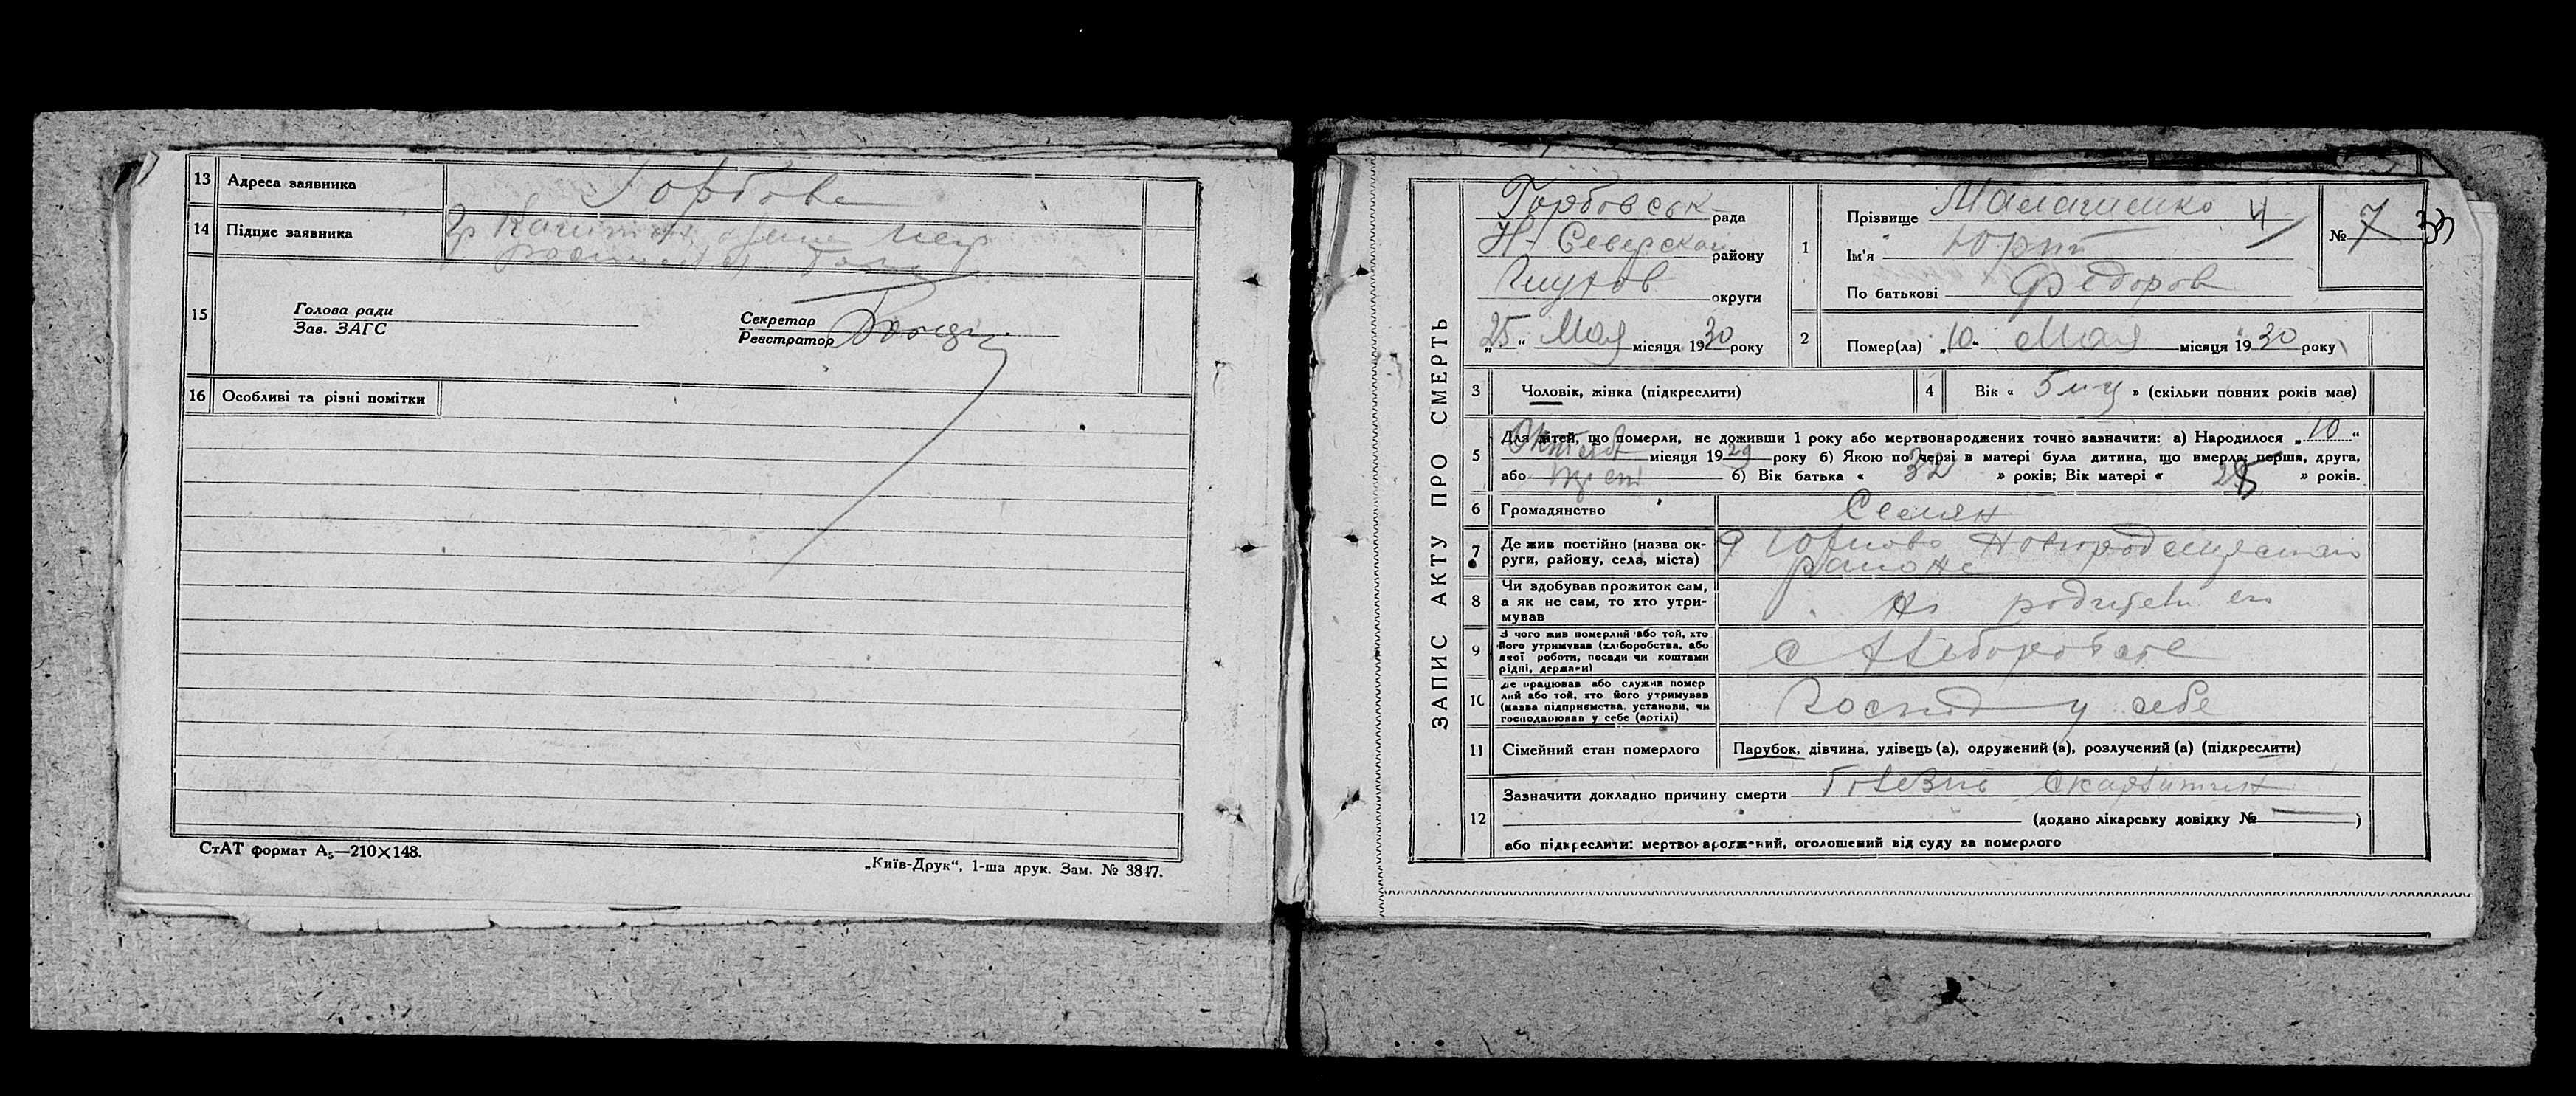 13 Адреса заявника Горбове
14 Підпис заявника
15 Голова ради
Зав. ЗАГС
Секретар
Реєстратор
16 Особливі та різні помітки
СтАТ формат А₅—210×148.
„Київ-Друк“, 1-ша друк. Зам. № 3847.
ЗАПИС АКТУ ПРО СМЕРТЬ
Горбовськ рада
Н-Северском району
Глухов округи
„25“ Мая місяця 1930 року
1 Прізвище Малашенко 4
Ім'я Юрий
По батькові Федоров
№ 7 33
2 Помер(ла) „10“ Мая місяця 1930 року
3 Чоловік, жінка (підкреслити)
4 Вік « 5 мц » (скільки повних років мав)
5 Для дітей, що померли, не доживши 1 року або мертвонароджених точно зазначити: а) Народилося „10“
Октяб місяця 1929 року б) Якою по черзі в матері була дитина, що вмерла: перша, друга,
або трет б) Вік батька « 32 » років; Вік матері « 28 » років.
6 Громадянство Селян
7 Де жив постійно (назва ок-
руги, району, села, міста)
районе
8 Чи вдобував прожиток сам,
а як не сам, то хто утри-
мував
родители
9 З чого жив померлий або той, хто
його утримував (хліборобства, або
якої роботи, посади чи коштами
рідні, держави)
с хлеборобство
10 Де працював або служив помер
лий або той, хто його утримував
(назва підприємства, установи, чи
господарював у себе (артілі)
Господ у себе
11 Сімейний стан померлого Парубок, дівчина, удівець(а), одружений(а), розлучений(а) (підкреслити)
12 Зазначити докладно причину смерти болезнь скарлатин
(додано лікарську довідку № — )
або підкреслити: мертвонароджений, оголошений від суду за померлого